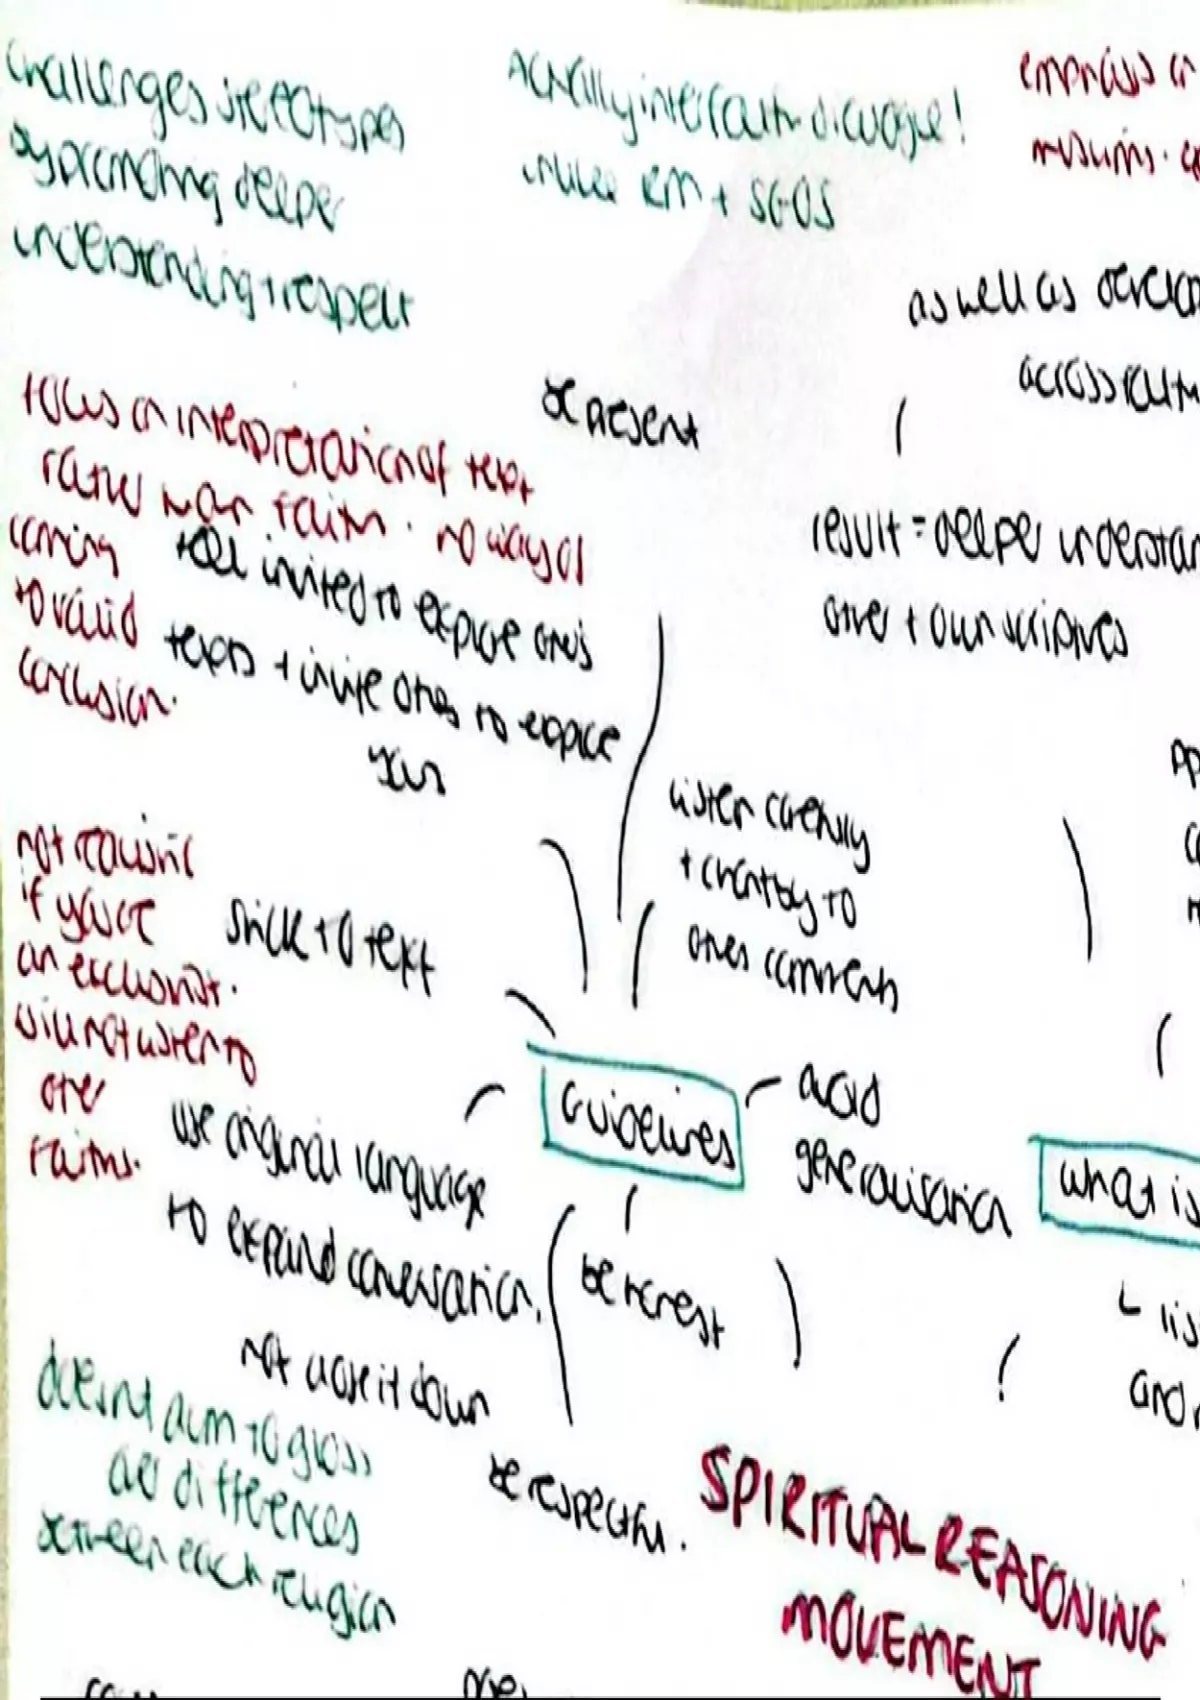 challenges stereotypes
by providing deeper
understanding + respect
Actually interfaith dialogue!
unlike RM + SGOS
emphasis on
muslims.
as well as
across faith
be present
focus on interpretation of text
rather than faith. no way of
coming
to valid
conclusion.
feel invited to explore others
texts + invite others to explore
yours
result = deeper understan
other + own scriptures
listen carefully
+ charitably to
others comments
not realistic
if you're
an exclusivist.
will not listen to
other
faiths.
stick to text
Guidelines
avoid
generalisation
what is
use original language
to expand conversation,
not close it down
be honest
lis
and
doesn't aim to gloss
over differences
between each religion
be respectful.
SPIRITUAL REASONING
MOVEMENT